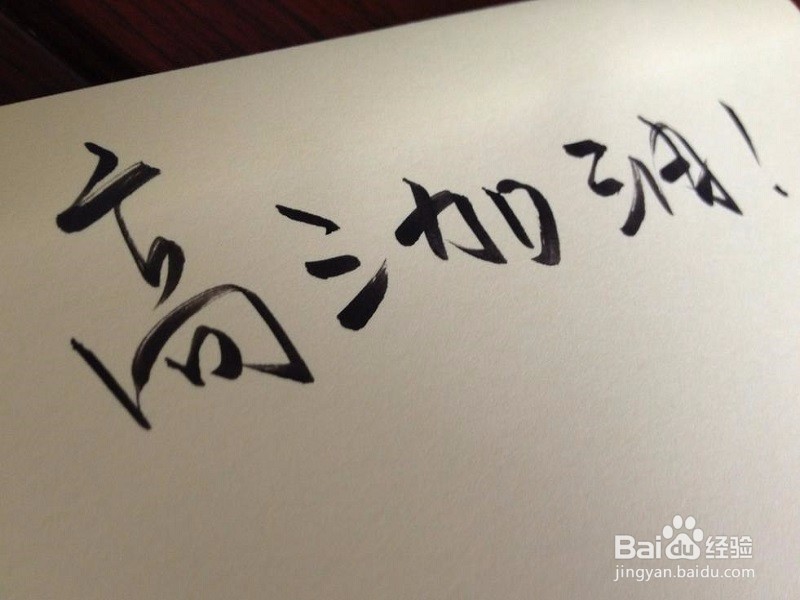 高三加油!
Baidu经验
jingyan.baidu.com